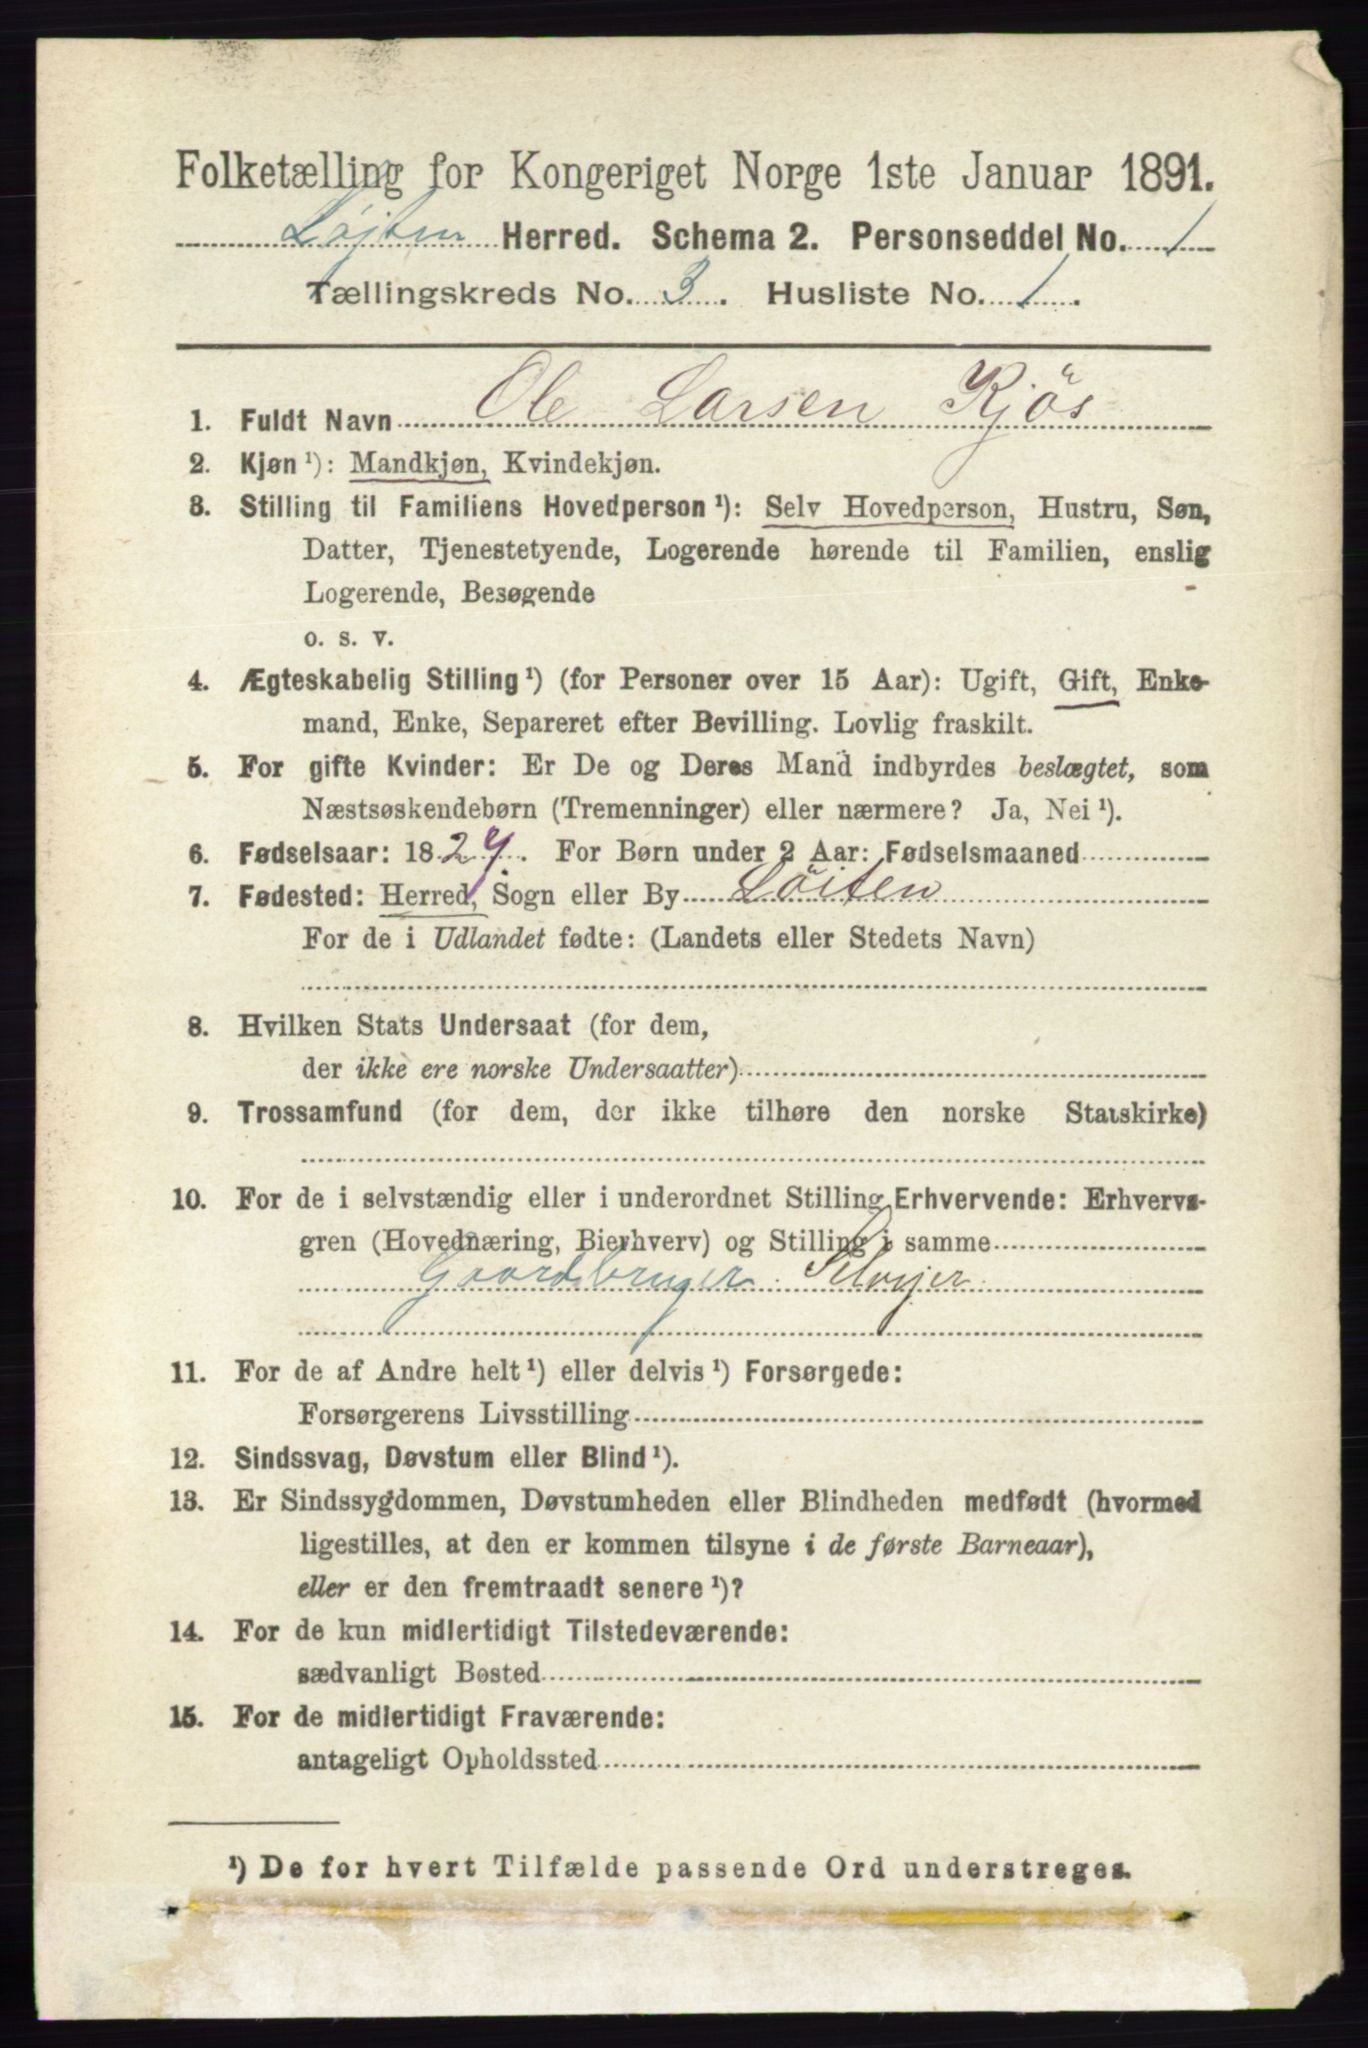 Folketælling for Kongeriget Norge 1ste Januar 1891.
Løjten Herred. Schema 2. Personseddel No. 1
Tællingskreds No. 3. Husliste No. 1.
1. Fuldt Navn Ole Larsen Kjös
2. Kjøn ¹): Mandkjøn, Kvindekjøn.
3. Stilling til Familiens Hovedperson ¹): Selv Hovedperson, Hustru, Søn,
Datter, Tjenestetyende, Logerende hørende til Familien, enslig
Logerende, Besøgende
o. s. v.
4. Ægteskabelig Stilling ¹) (for Personer over 15 Aar): Ugift, Gift, Enke-
mand, Enke, Separeret efter Bevilling. Lovlig fraskilt.
5. For gifte Kvinder: Er De og Deres Mand indbyrdes beslægtet, som
Næstsøskendebørn (Tremenninger) eller nærmere? Ja, Nei ¹).
6. Fødselsaar: 182 . For Børn under 2 Aar: Fødselsmaaned
7. Fødested: Herred, Sogn eller By Löiten
For de i Udlandet fødte: (Landets eller Stedets Navn)
8. Hvilken Stats Undersaat (for dem,
der ikke ere norske Undersaatter)
9. Trossamfund (for dem, der ikke tilhøre den norske Statskirke)
10. For de i selvstændig eller i underordnet Stilling Erhvervende: Erhvervs-
gren (Hovednæring, Bierhverv) og Stilling i samme
Gaardbruger Selvejer
11. For de af Andre helt ¹) eller delvis ¹) Forsørgede:
Forsørgerens Livsstilling
12. Sindssvag, Døvstum eller Blind ¹).
13. Er Sindssygdommen, Døvstumheden eller Blindheden medfødt (hvormed
ligestilles, at den er kommen tilsyne i de første Barneaar),
eller er den fremtraadt senere ¹)?
14. For de kun midlertidigt Tilstedeværende:
sædvanligt Bosted
15. For de midlertidigt Fraværende:
antageligt Opholdssted
¹) De for hvert Tilfælde passende Ord understreges.